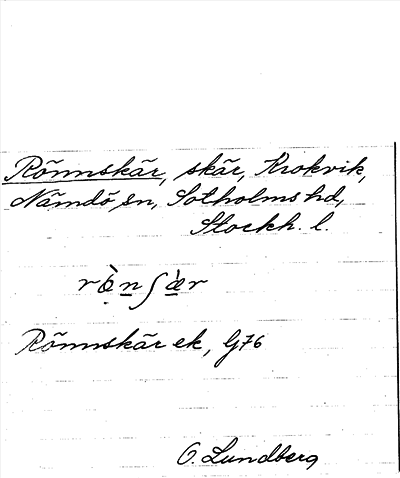 Rönnskär, skär, Krokvik,
Nämdö sn, Sotholms hd,
Stockh. l.
rœ̣̀n̲ʃæ̲̀r
Rönnskär ek, G76
O. Lundberg